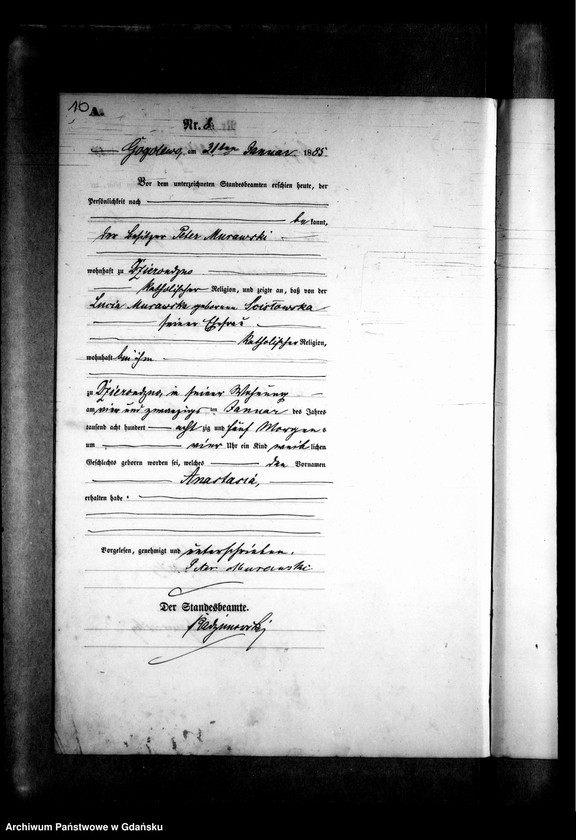 10
A.
Nr. 8
Gogolewo, am 31ten Januar 1885
Vor dem unterzeichneten Standesbeamten erschien heute, der
Persönlichkeit nach
be kannt,
der Besitzer Peter Murawski
wohnhaft zu Dzierondzno
katholischer Religion, und zeigte an, daß von der
Lucia Murawska geborene Scistowska
seiner Ehefrau
katholischer Religion,
wohnhaft bei ihm
zu Dzierondzno, in seiner Wohnung
am vier und zwanzigs ten Januar des Jahres
tausend acht hundert acht zig und fünf Morgens
um vier Uhr ein Kind weib lichen
Geschlechts geboren worden sei, welches den Vornamen
Anastasia,
erhalten habe.
Vorgelesen, genehmigt und unterschrieben.
Peter Murawski
Der Standesbeamte.
Archiwum Państwowe w Gdańsku